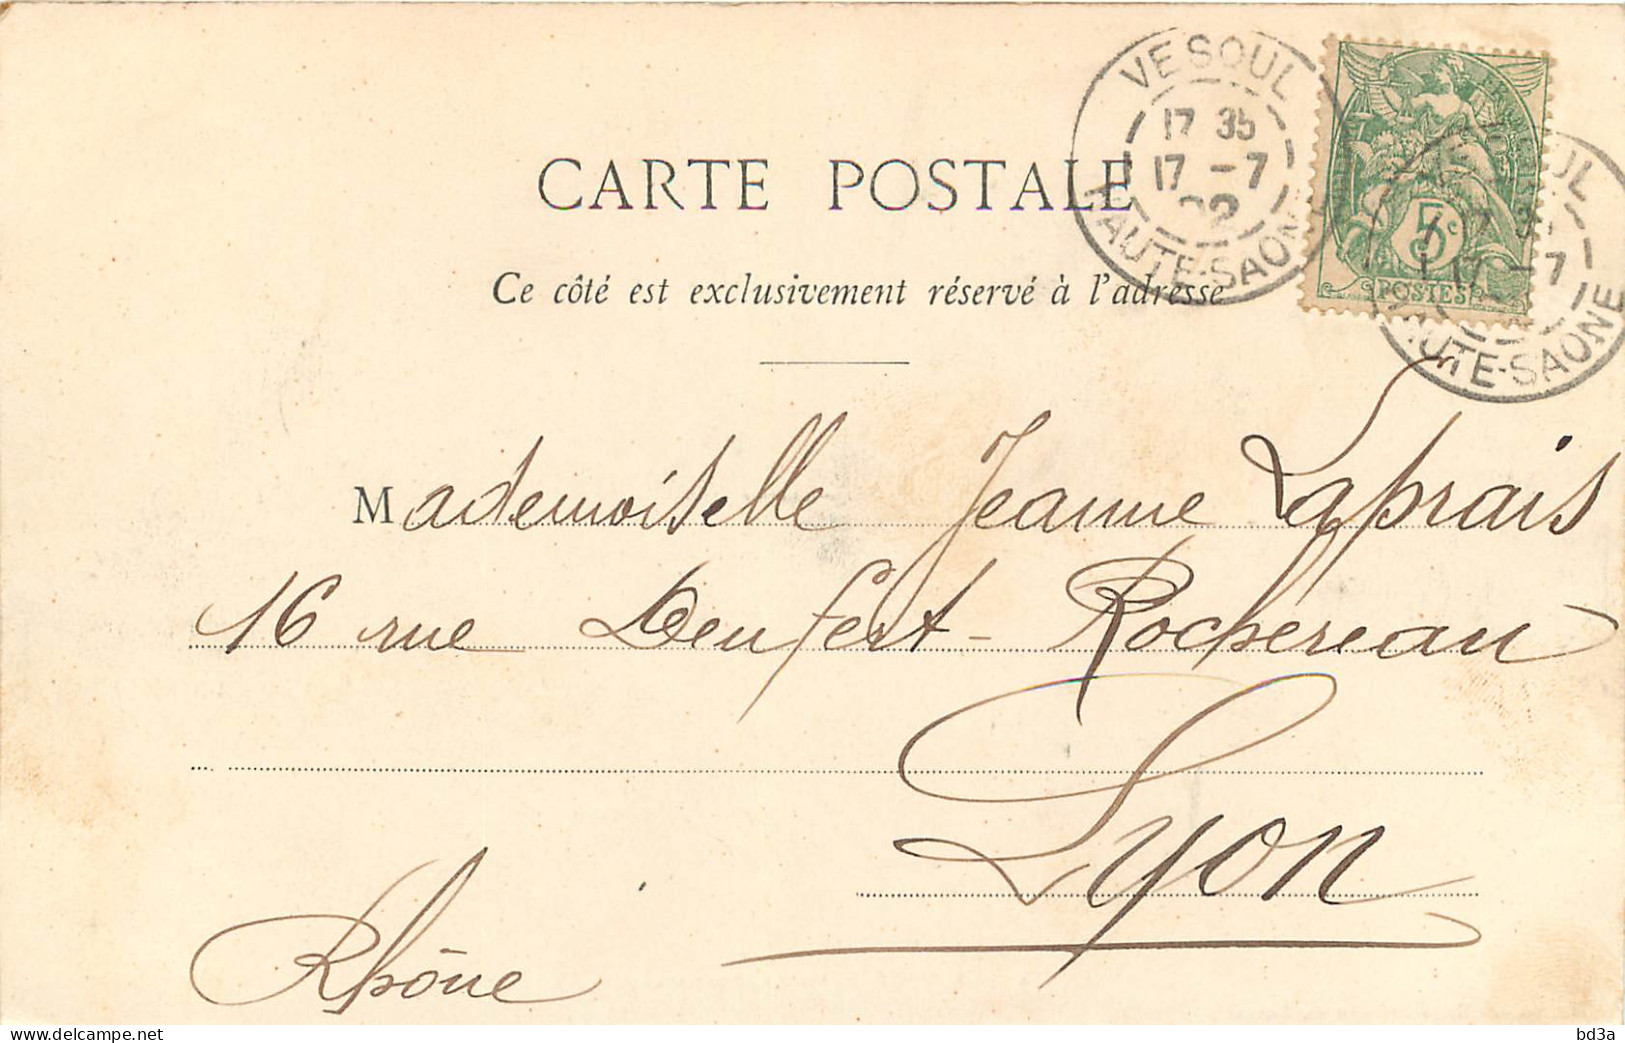 CARTE POSTALE
Ce côté est exclusivement réservé à l'adresse
VESOUL
17 35
17 -7
02
HAUTE-SAONE
5c
POSTES
17 -7
HAUTE-SAONE
Mademoiselle Jeanne Laprais
16 rue Denfert-Rochereau
Lyon
Rhône
delcampe.net
bd3a